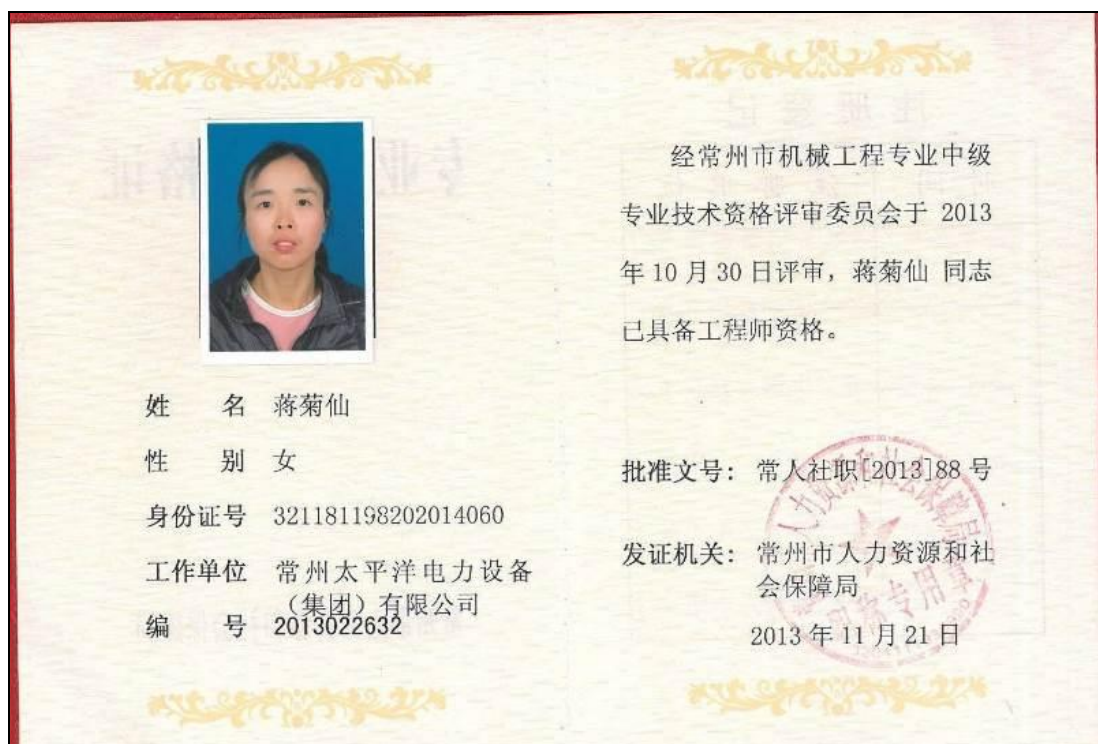 姓 名 蒋菊仙
性 别 女
身份证号 321181198202014060
工作单位 常州太平洋电力设备
（集团）有限公司
编 号 2013022632
经常州市机械工程专业中级
专业技术资格评审委员会于 2013
年 10 月 30 日评审，蒋菊仙 同志
已具备工程师资格。
批准文号： 常人社职[2013]88 号
发证机关： 常州市人力资源和社
会保障局
2013 年 11 月 21 日